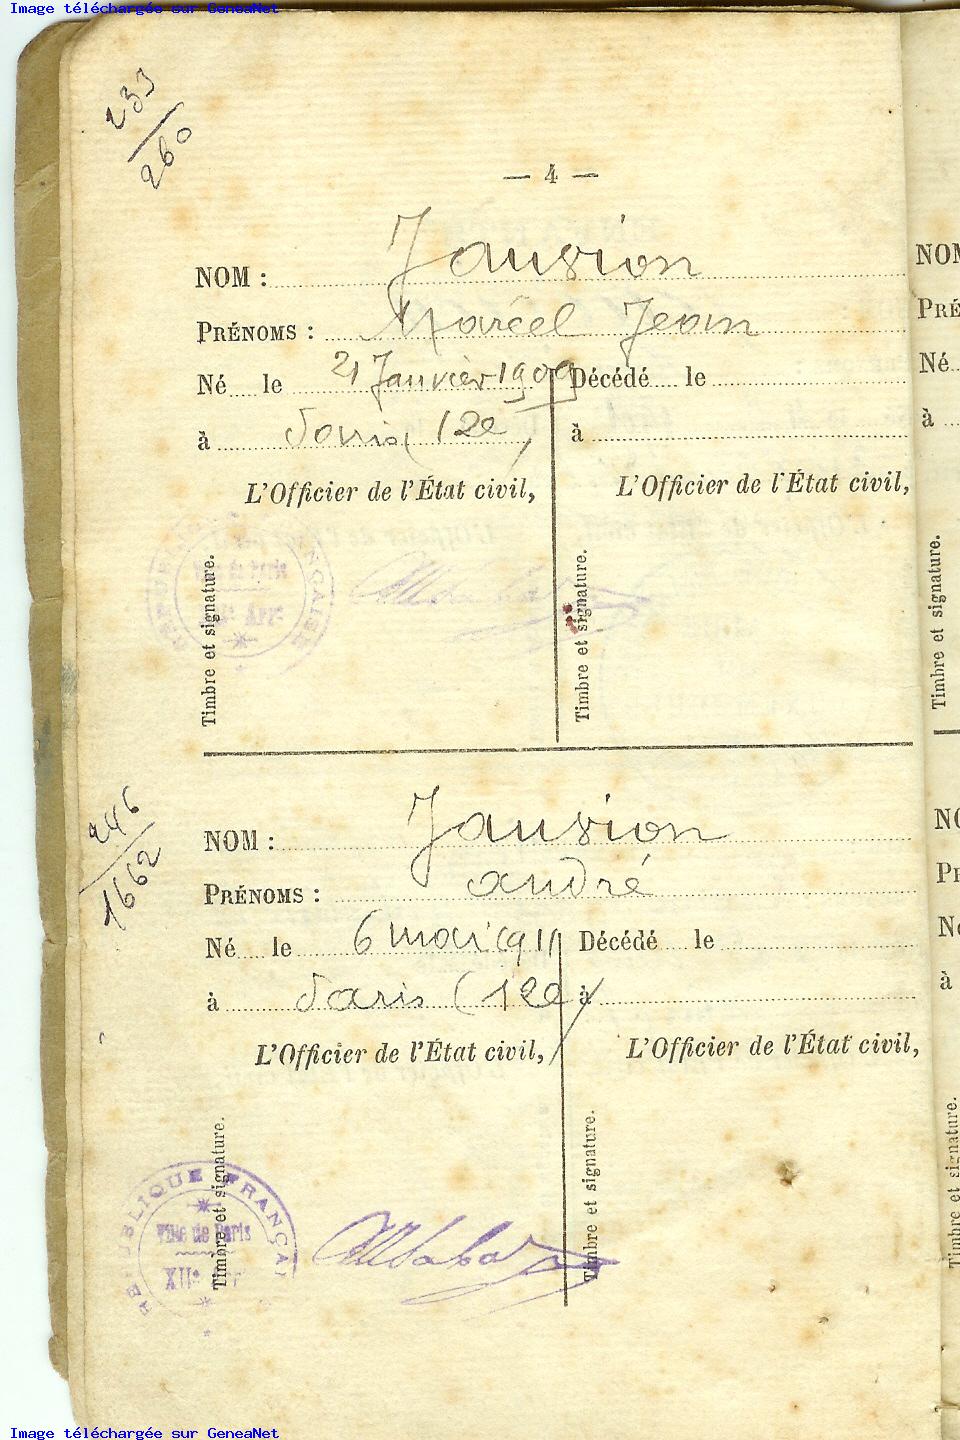 Image téléchargée sur GeneaNet
233
260
— 4 —
NOM : Jausion
PRÉNOMS : Marcel Jean
Né le 21 Janvier 1909 Décédé le
à Paris (12e) à
L'Officier de l'État civil, L'Officier de l'État civil,
Timbre et signature. Timbre et signature.
Ville de Paris
246
1662
NOM : Jausion
PRÉNOMS : andré
Né le 6 mai 1911 Décédé le
à Paris (12e) à
L'Officier de l'État civil, L'Officier de l'État civil,
Timbre et signature. Timbre et signature.
RÉPUBLIQUE FRANÇAI
Ville de Paris
XIIe Arr
NOM
PRÉ
Né
à
Timbre et signature.
NO
PR
Né
à
Timbre et signature.
Image téléchargée sur GeneaNet